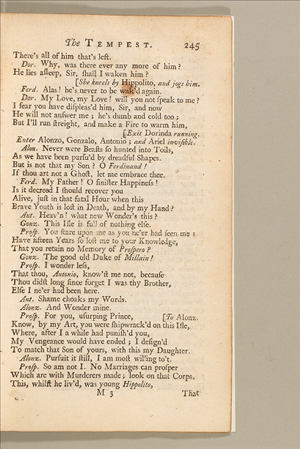 The TEMPEST. 245
There's all of him that's left.
Dor. Why, was there ever any more of him?
He lies asleep, Sir, shall I waken him?
[She kneels by Hippolito, and jogs him.
Ferd. Alas! he's never to be wak'd again.
Dor. My Love, my Love! will you not speak to me?
I fear you have displeas'd him, Sir, and now
He will not answer me; he's dumb and cold too;
But I'll run streight, and make a Fire to warm him,
[Exit Dorinda running.
Enter Alonzo, Gonzalo, Antonio; and Ariel invisible.
Alon. Never were Beasts so hunted into Toils,
As we have been pursu'd by dreadful Shapes.
But is not that my Son? O Ferdinand!
If thou art not a Ghost, let me embrace thee.
Ferd. My Father! O sinister Happiness!
Is it decreed I should recover you
Alive, just in that fatal Hour when this
Brave Youth is lost in Death, and by my Hand?
Ant. Heav'n! what new Wonder's this?
Gonz. This Isle is full of nothing else.
Prosp. You stare upon me as you ne'er had seen me:
Have fifteen Years so lost me to your Knowledge,
That you retain no Memory of Prospero?
Gonz. The good old Duke of Millain!
Prosp. I wonder less,
That thou, Antonio, know'st me not, because
Thou didst long since forget I was thy Brother,
Else I ne'er had been here.
Ant. Shame choaks my Words.
Alonz. And Wonder mine.
Prosp. For you, usurping Prince, [To Alonz.
Know, by my Art, you were shipwrack'd on this Isle,
Where, after I a while had punish'd you,
My Vengeance would have ended; I design'd
To match that Son of yours, with this my Daughter.
Alonz. Pursue it still, I am most willing to't.
Prosp. So am not I. No Marriages can prosper
Which are with Murderers made; look on that Corps,
This, whilst he liv'd, was young Hippolito,
M 3 That